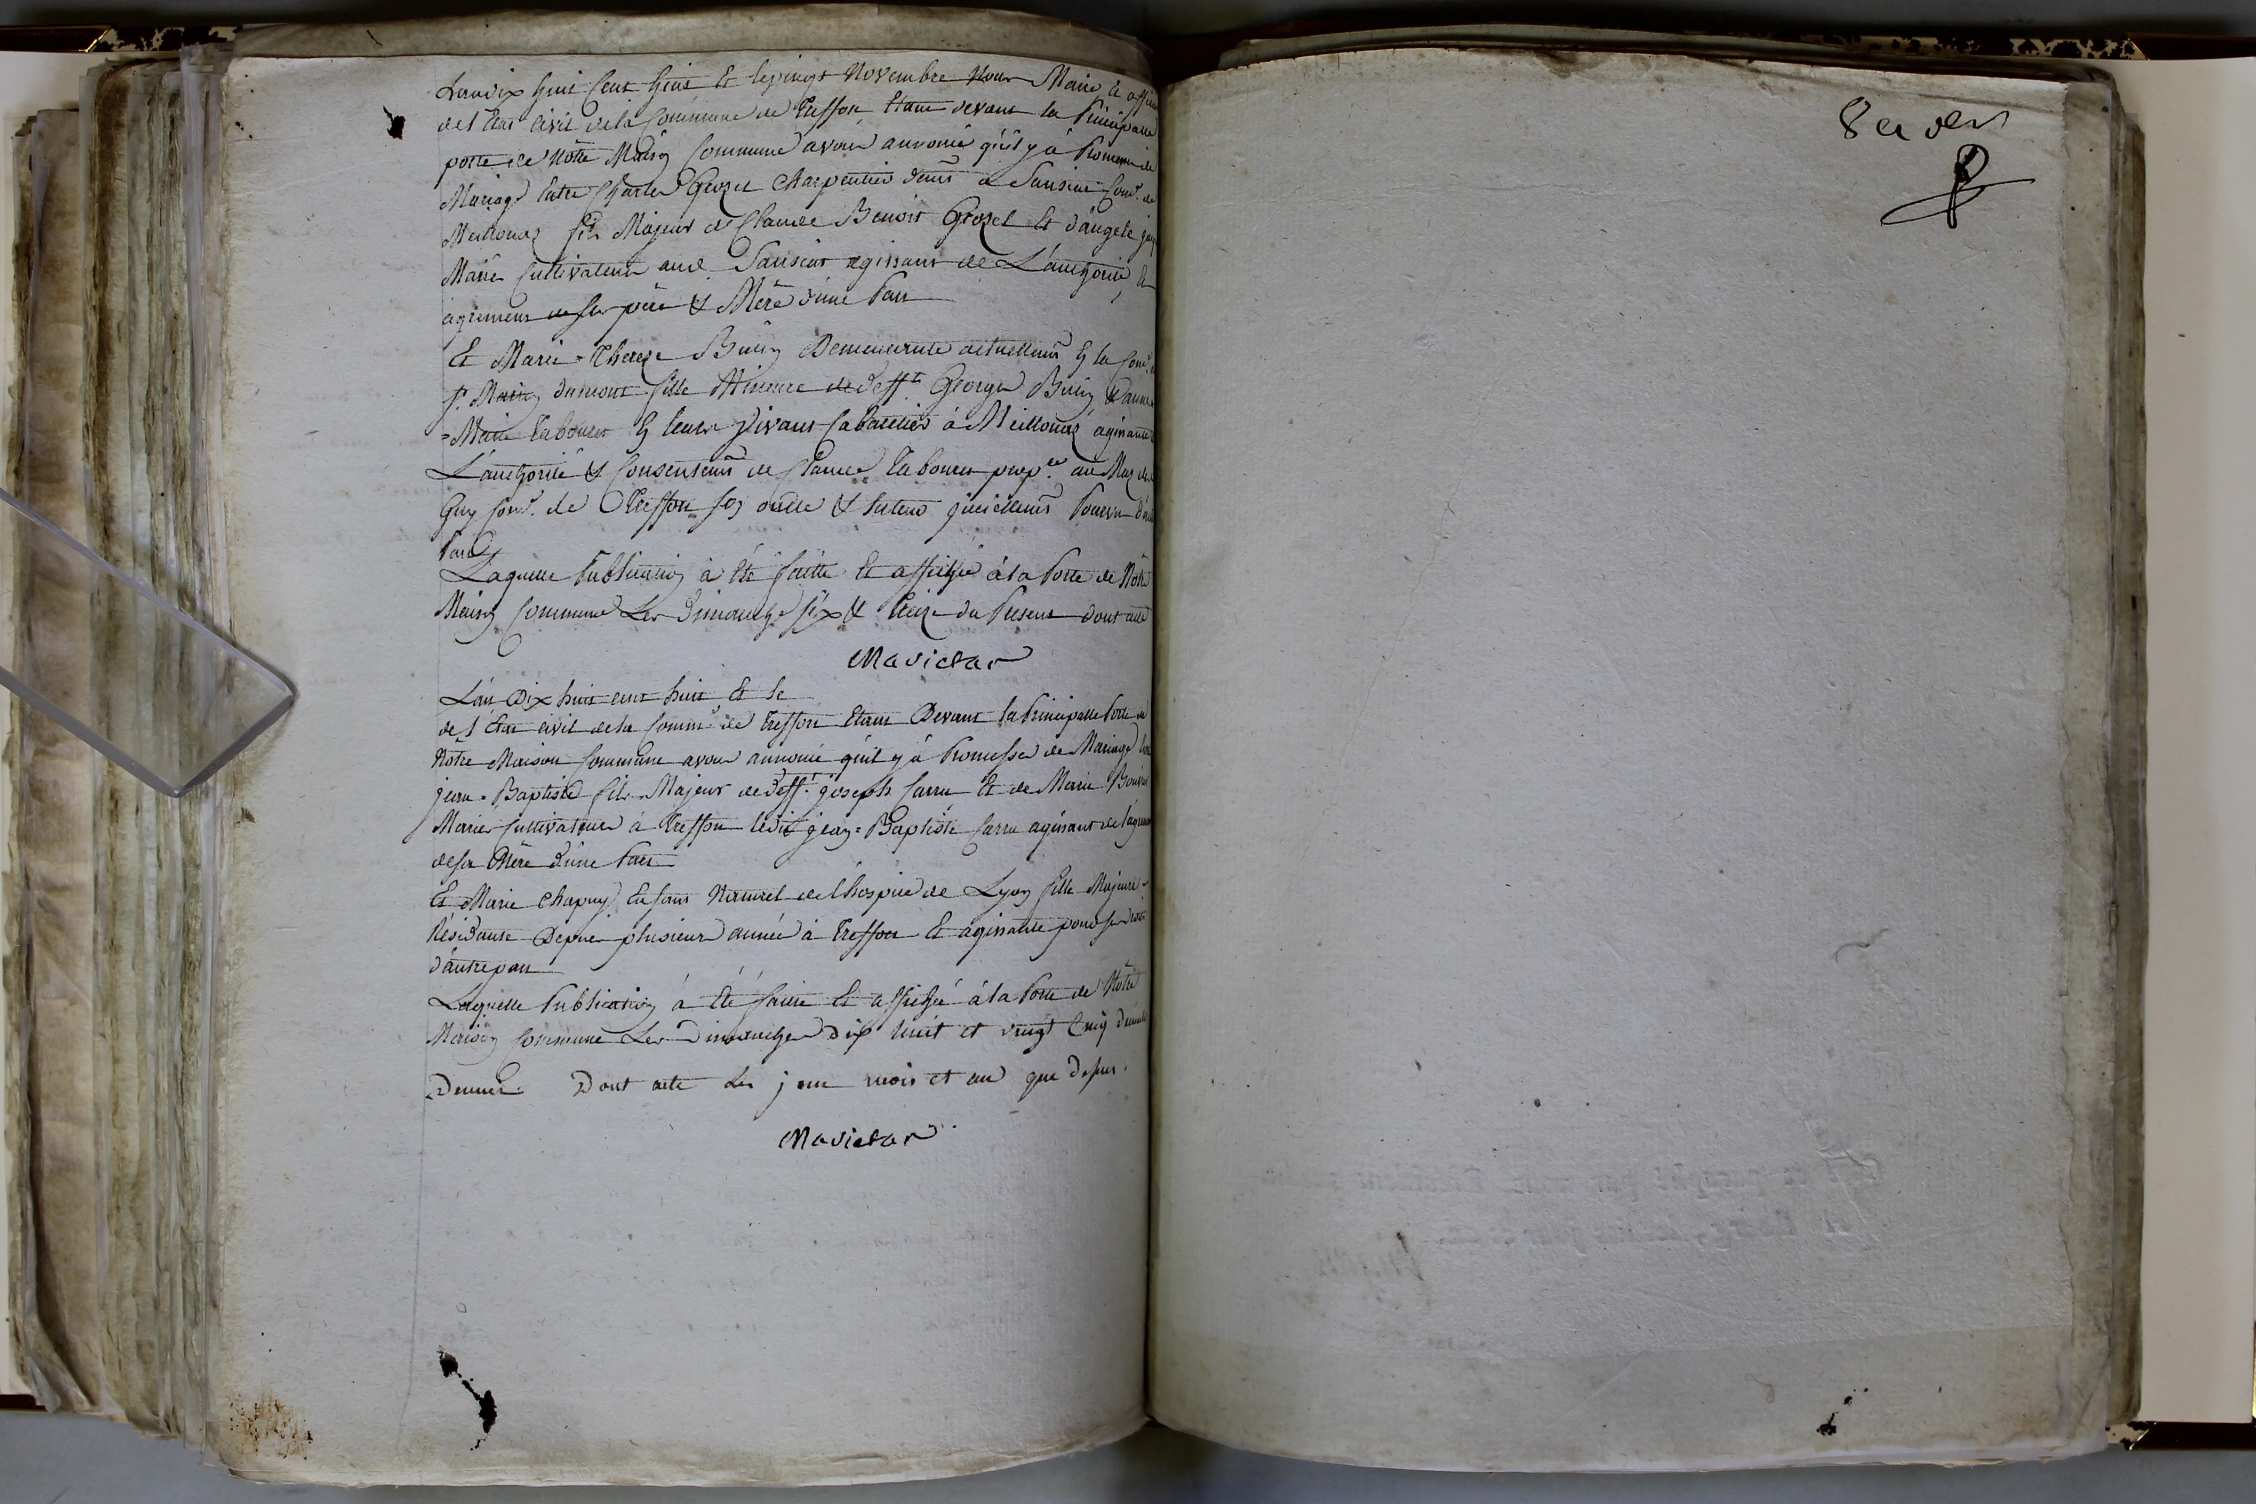 L'an dix huit Cent huit Et le vingt Novembre Nous Maire & offic
de l'Etat Civil de la Commune de Treffort Etant devant la Principalle
porte de Nôtre Maison Commune avons annoncé qu'il y á Promesse de
Mariage Entre Charles Grozel Charpentier demt a Sanciat Comne de
Meillonaz fils Majeur de Claude Benoit Grozel Et d'angele
Mariés Cultivateurs aud. Sanciat agissant de L'authorité &
agrement de ses père & Mère d'une Part
Et Marie-Therese Buiry Demeurante actuellemt En la Comne
St. Martin dumont fille Mineure de deffts George Buiry &
Marie Tabouret En leurs vivans Cabaretiers á Meillonaz agissante
L'authorité & Consentemt de Claude Tabouret propre au Maz
Guy Comne de Treffort son oncle & tuteur Pourvu
Part
Laquelle Publication à Eté faitte Et affichée á la Porte de Nôtre
Maison Commune Les dimanches six & treize du Present dont acte
Mavictar
L'an Dix huit cent huit Et le
de l'Etat civil de la Comm. de Treffort Etant Devant la Principalle Porte de
Nôtre Maison Commune avons annoncé qu'il y á Promesse de Mariage
jean-Baptiste fils Majeur de defft joseph Carru Et de Marie
Mariés Cultivateurs á Treffort ledit jean-Baptiste Carru agissant de
de sa Mère d'une Part
Et Marie Chapuy Enfant Naturel de l'hospice de Lyon fille Majeure
Résidante Depuis plusieurs années à Treffort Et agissante pour ses droits
d'autre part
Laquelle Publication á Eté faitte Et affichée á la Porte de Nôtre
Maison Commune Les Dimanches Dix huit et vingt Cinq
Dernier Dont acte Les jour mois et an que dessus.
Mavictar
8 et der